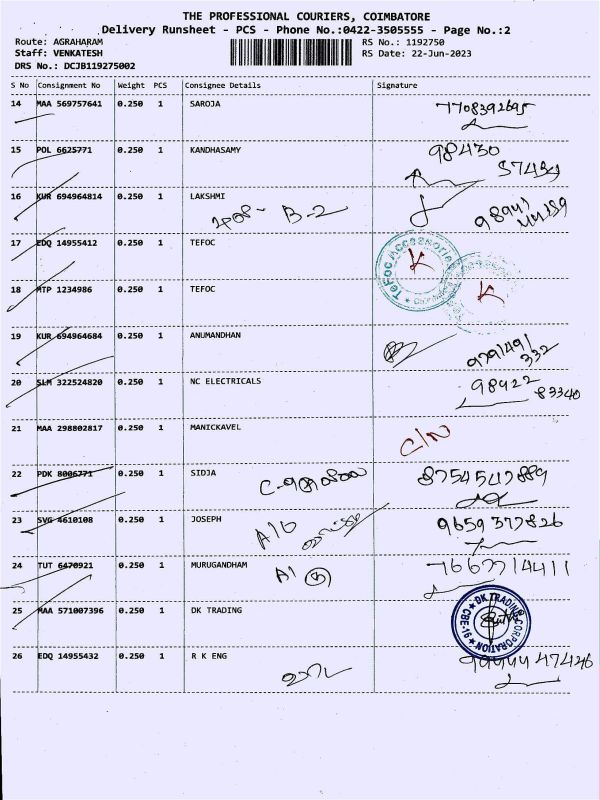 THE PROFESSIONAL COURIERS, COIMBATORE
Delivery Runsheet - PCS - Phone No.:0422-3505555 - Page No.:2
Route: AGRAHARAM
Staff: VENKATESH
DRS No.: DCJB119275002
RS No.: 1192750
RS Date: 22-Jun-2023
S No Consignment No Weight PCS Consignee Details Signature
14 MAA 569757641 0.250 1 SAROJA 7708392695
15 POL 6625771 0.250 1 KANDHASAMY 98430
57434
16 KUR 694964814 0.250 1 LAKSHMI
B-2
17 EDQ 14955412 0.250 1 TEFOC
TeFoc Accessories
K
18 MTP 1234986 0.250 1 TEFOC
K
19 KUR 694964684 0.250 1 ANUMANDHAN
9791491
332
20 SLM 322524820 0.250 1 NC ELECTRICALS 98422
83340
21 MAA 298802817 0.250 1 MANICKAVEL C/N
22 PDK 8006771 0.250 1 SIDJA 8754547889
23 SVG 4610108 0.250 1 JOSEPH 9659377826
24 TUT 6470921 0.250 1 MURUGANDHAM 7667714411
A1
25 MAA 571007396 0.250 1 DK TRADING
DK TRADING CORPORATION
CBE-16
26 EDQ 14955432 0.250 1 R K ENG 99444 47426